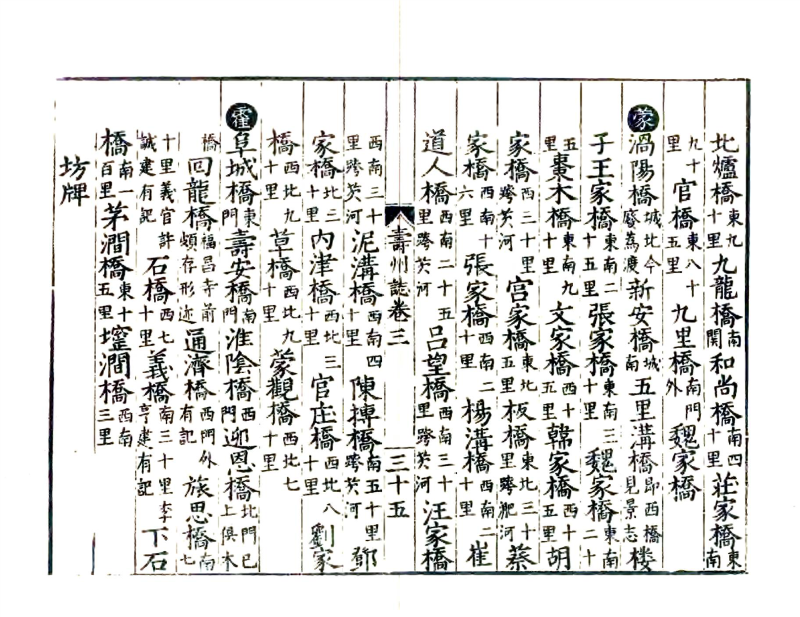 北爐橋東九十里九龍橋南關和尚橋南四十里莊家橋東南
九十里官橋東八十五里九里橋南門外魏家橋
蒙渦陽橋城北今廢為渡新安橋城南五里溝橋即西橋見景志楼
子王家橋東南二十五里張家橋東南三十里魏家橋東南二十
五里棗木橋東南九十里文家橋西十五里韓家橋西十五里胡
家橋西三十里跨茨河宫家橋東北五里板橋東北三十里跨淝河蔡
家橋西南十六里張家橋西南二十里楊溝橋西南二十里崔
道人橋西南二十五里跨茨河吕望橋西南三十里跨茨河汪家橋
壽州誌卷三
三十五
西南三十里跨茨河泥溝橋西南四十里陳摶橋南五十里跨茨河鄧
家橋北三十里内津橋西北三十里官庄橋西北八十里劉家
橋西北九十里草橋西北九十里蒙觀橋西北七十里
霍阜城橋東門壽安橋南門淮陰橋西門迎恩橋北門已上俱木
橋回龍橋福昌寺前頗存形迹通濟橋西門外有記旅思橋南七
十里義官許誠建有記石橋西七十里義橋南三十里李亨建有記下石
橋南一百里茅澗橋東十五里墥澗橋西南三里
坊牌